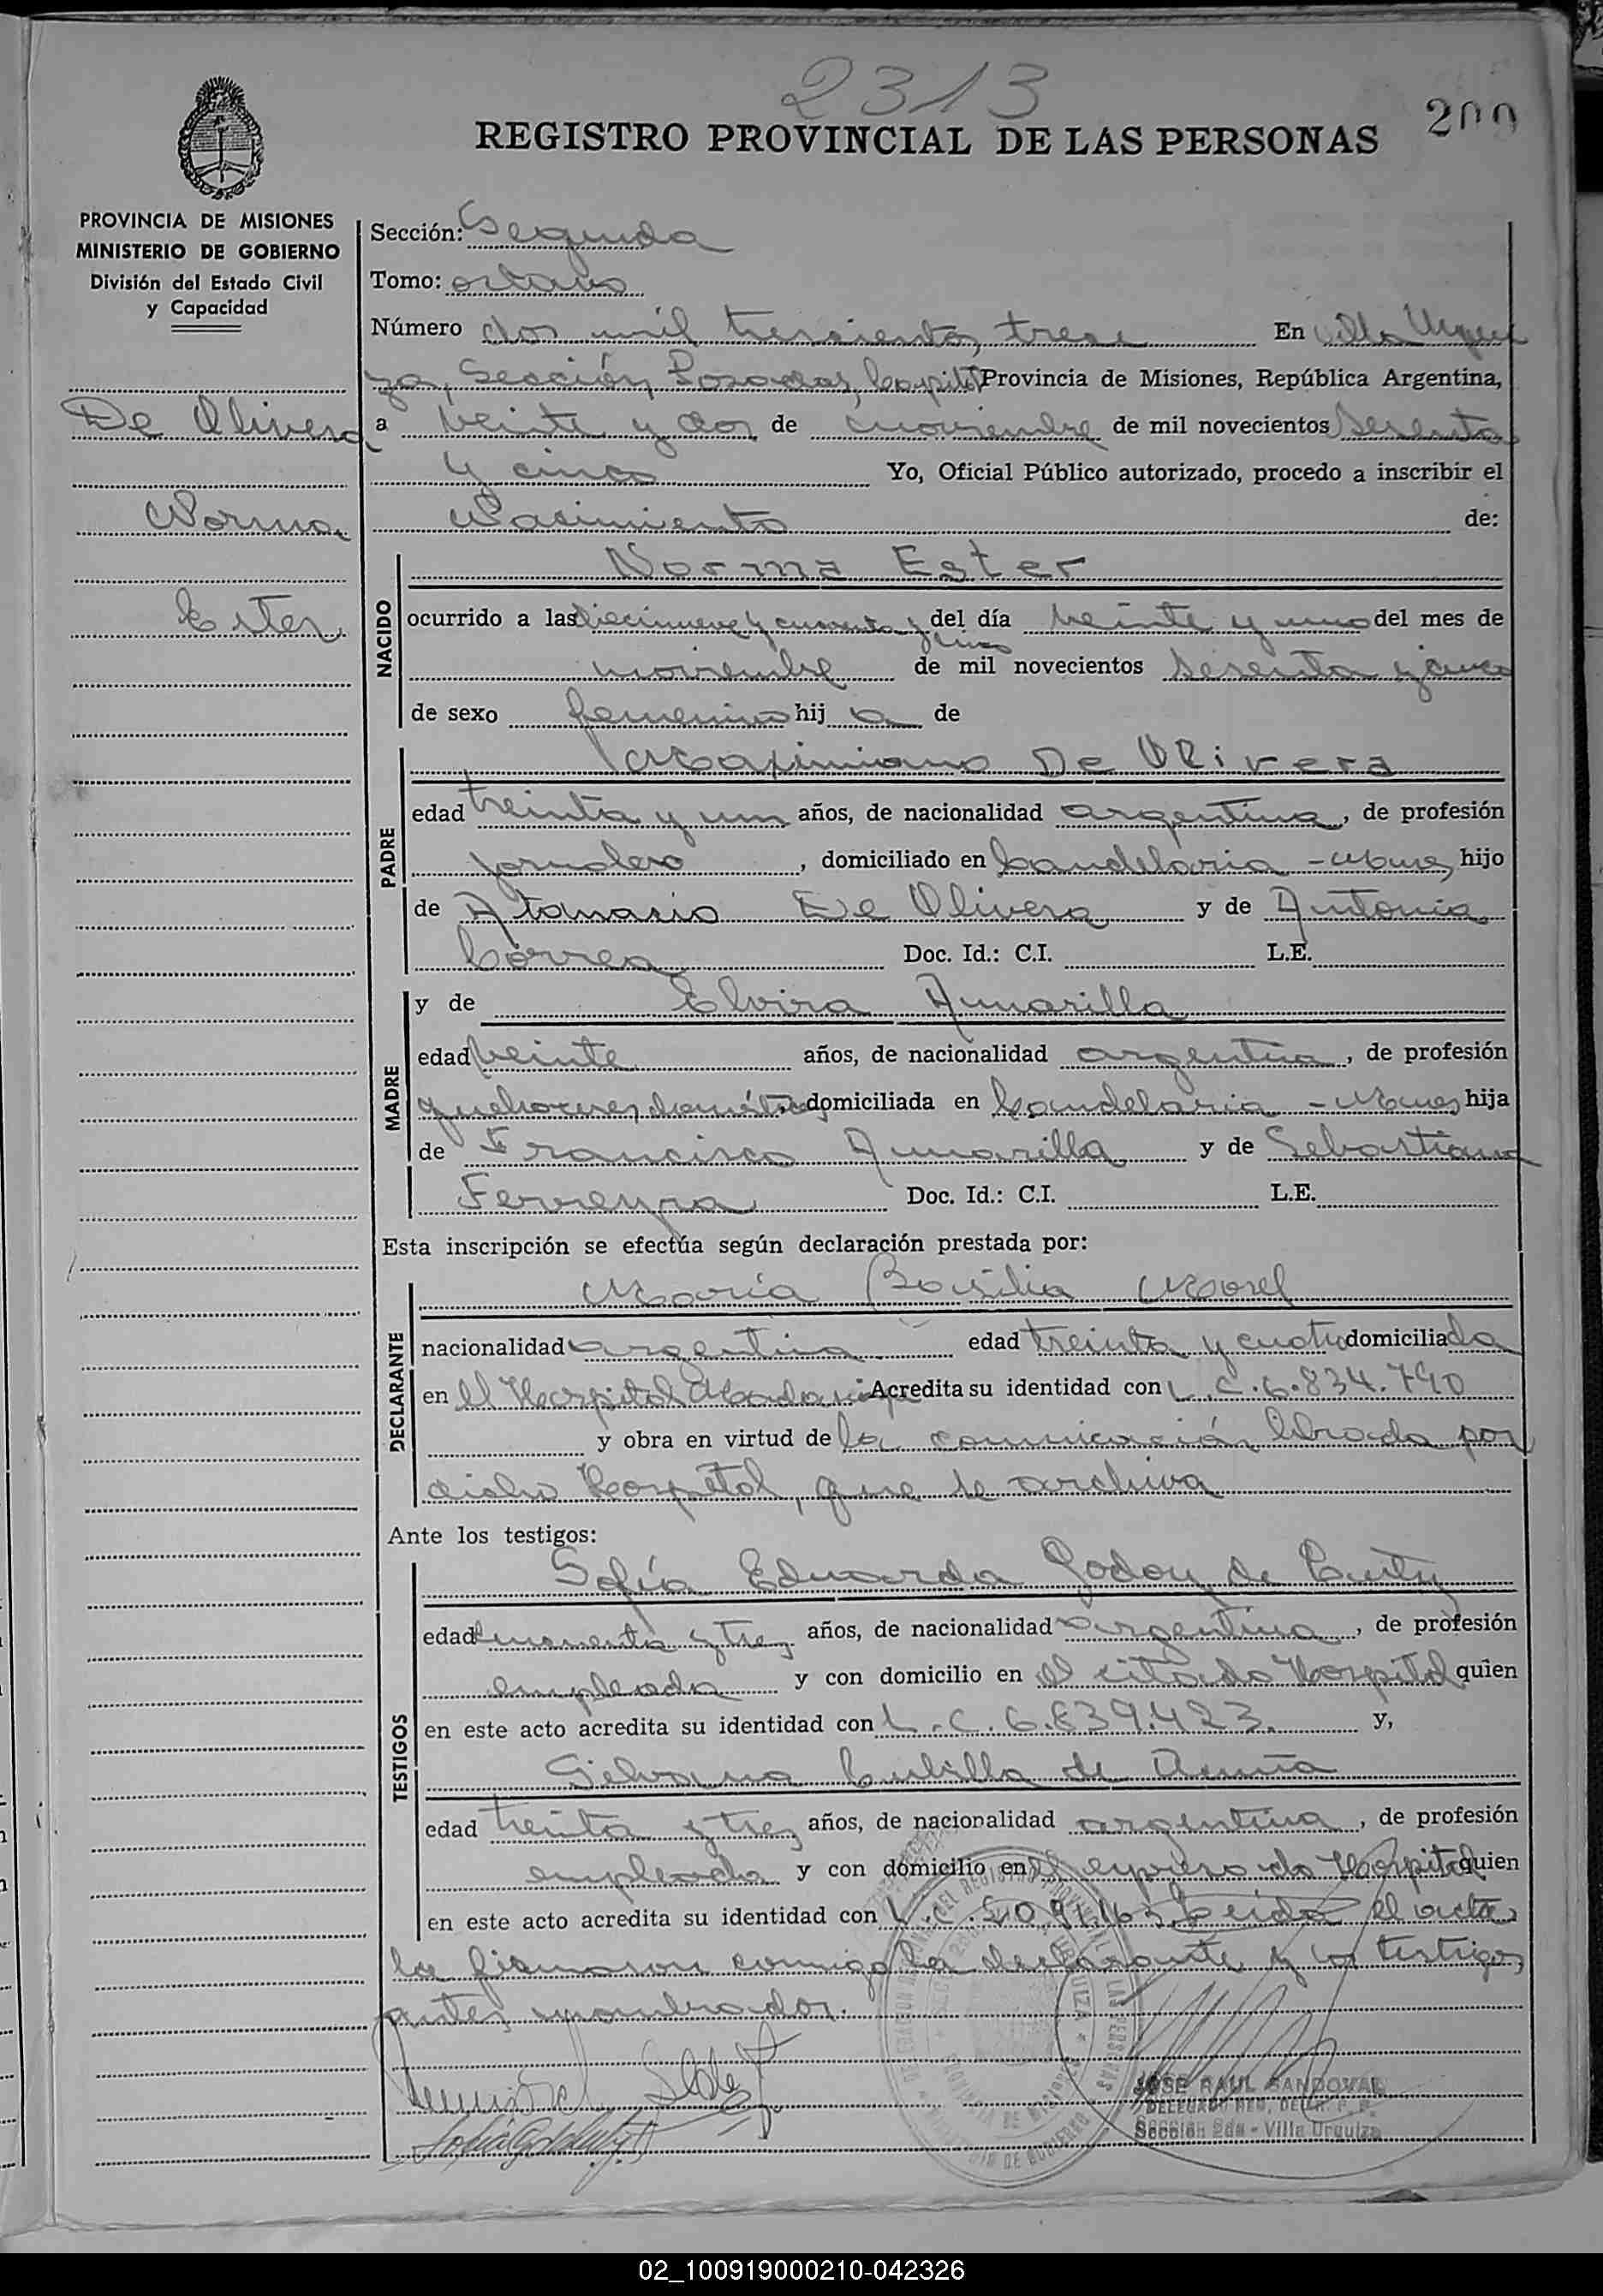 2313
REGISTRO PROVINCIAL DE LAS PERSONAS
200
PROVINCIA DE MISIONES
MINISTERIO DE GOBIERNO
División del Estado Civil
y Capacidad
De Olivera
Norma
Ester
Sección: Segunda
Tomo: octavo
Número dos mil trescientos trece En Villa Urqui
za, Sección Posadas, Capital Provincia de Misiones, República Argentina,
a veinte y dos de noviembre de mil novecientos sesenta
y cinco Yo, Oficial Público autorizado, procedo a inscribir el
Nacimiento de:
NACIDO
Norma Ester
ocurrido a las diecinueve y cuarenta y del día veinte y uno del mes de
cinco
noviembre de mil novecientos sesenta y cinco
de sexo femenino hij a de
PADRE
Maximiano De Olivera
edad treinta y un años, de nacionalidad argentina, de profesión
jornalero, domiciliado en Candelaria - Mnes, hijo
de Atanasio De Olivera y de Antonia
Correa Doc. Id.: C.I. L.E.
MADRE
y de Elvira Amarilla
edad veinte años, de nacionalidad argentina, de profesión
quehaceres domésticos domiciliada en Candelaria - Mnes hija
de Francisco Amarilla y de Sebastiana
Ferreyra Doc. Id.: C.I. L.E.
Esta inscripción se efectúa según declaración prestada por:
DECLARANTE
María Basilia Morel
nacionalidad argentina edad treinta y cuatro domiciliada
en el Hospital Madariaga Acredita su identidad con L.C. 6.834.790
y obra en virtud de la comunicación librada por
dicho Hospital, que se archiva
Ante los testigos:
TESTIGOS
Sofía Eduarda Godoy de
edad cuarenta y tres años, de nacionalidad argentina, de profesión
empleada y con domicilio en el citado Hospital quien
en este acto acredita su identidad con L.C. 6.839.423. y,
Silvana Cubilla de Acuña
edad treinta y tres años, de nacionalidad argentina, de profesión
empleada y con domicilio en el expresado Hospital quien
en este acto acredita su identidad con L.C. Leida el acta
la firmaron conmigo la declarante y los testigos
antes nombrados.
JOSE RAUL SANDOVAL
Sección 2da - Villa Urquiza
02_100919000210-042326